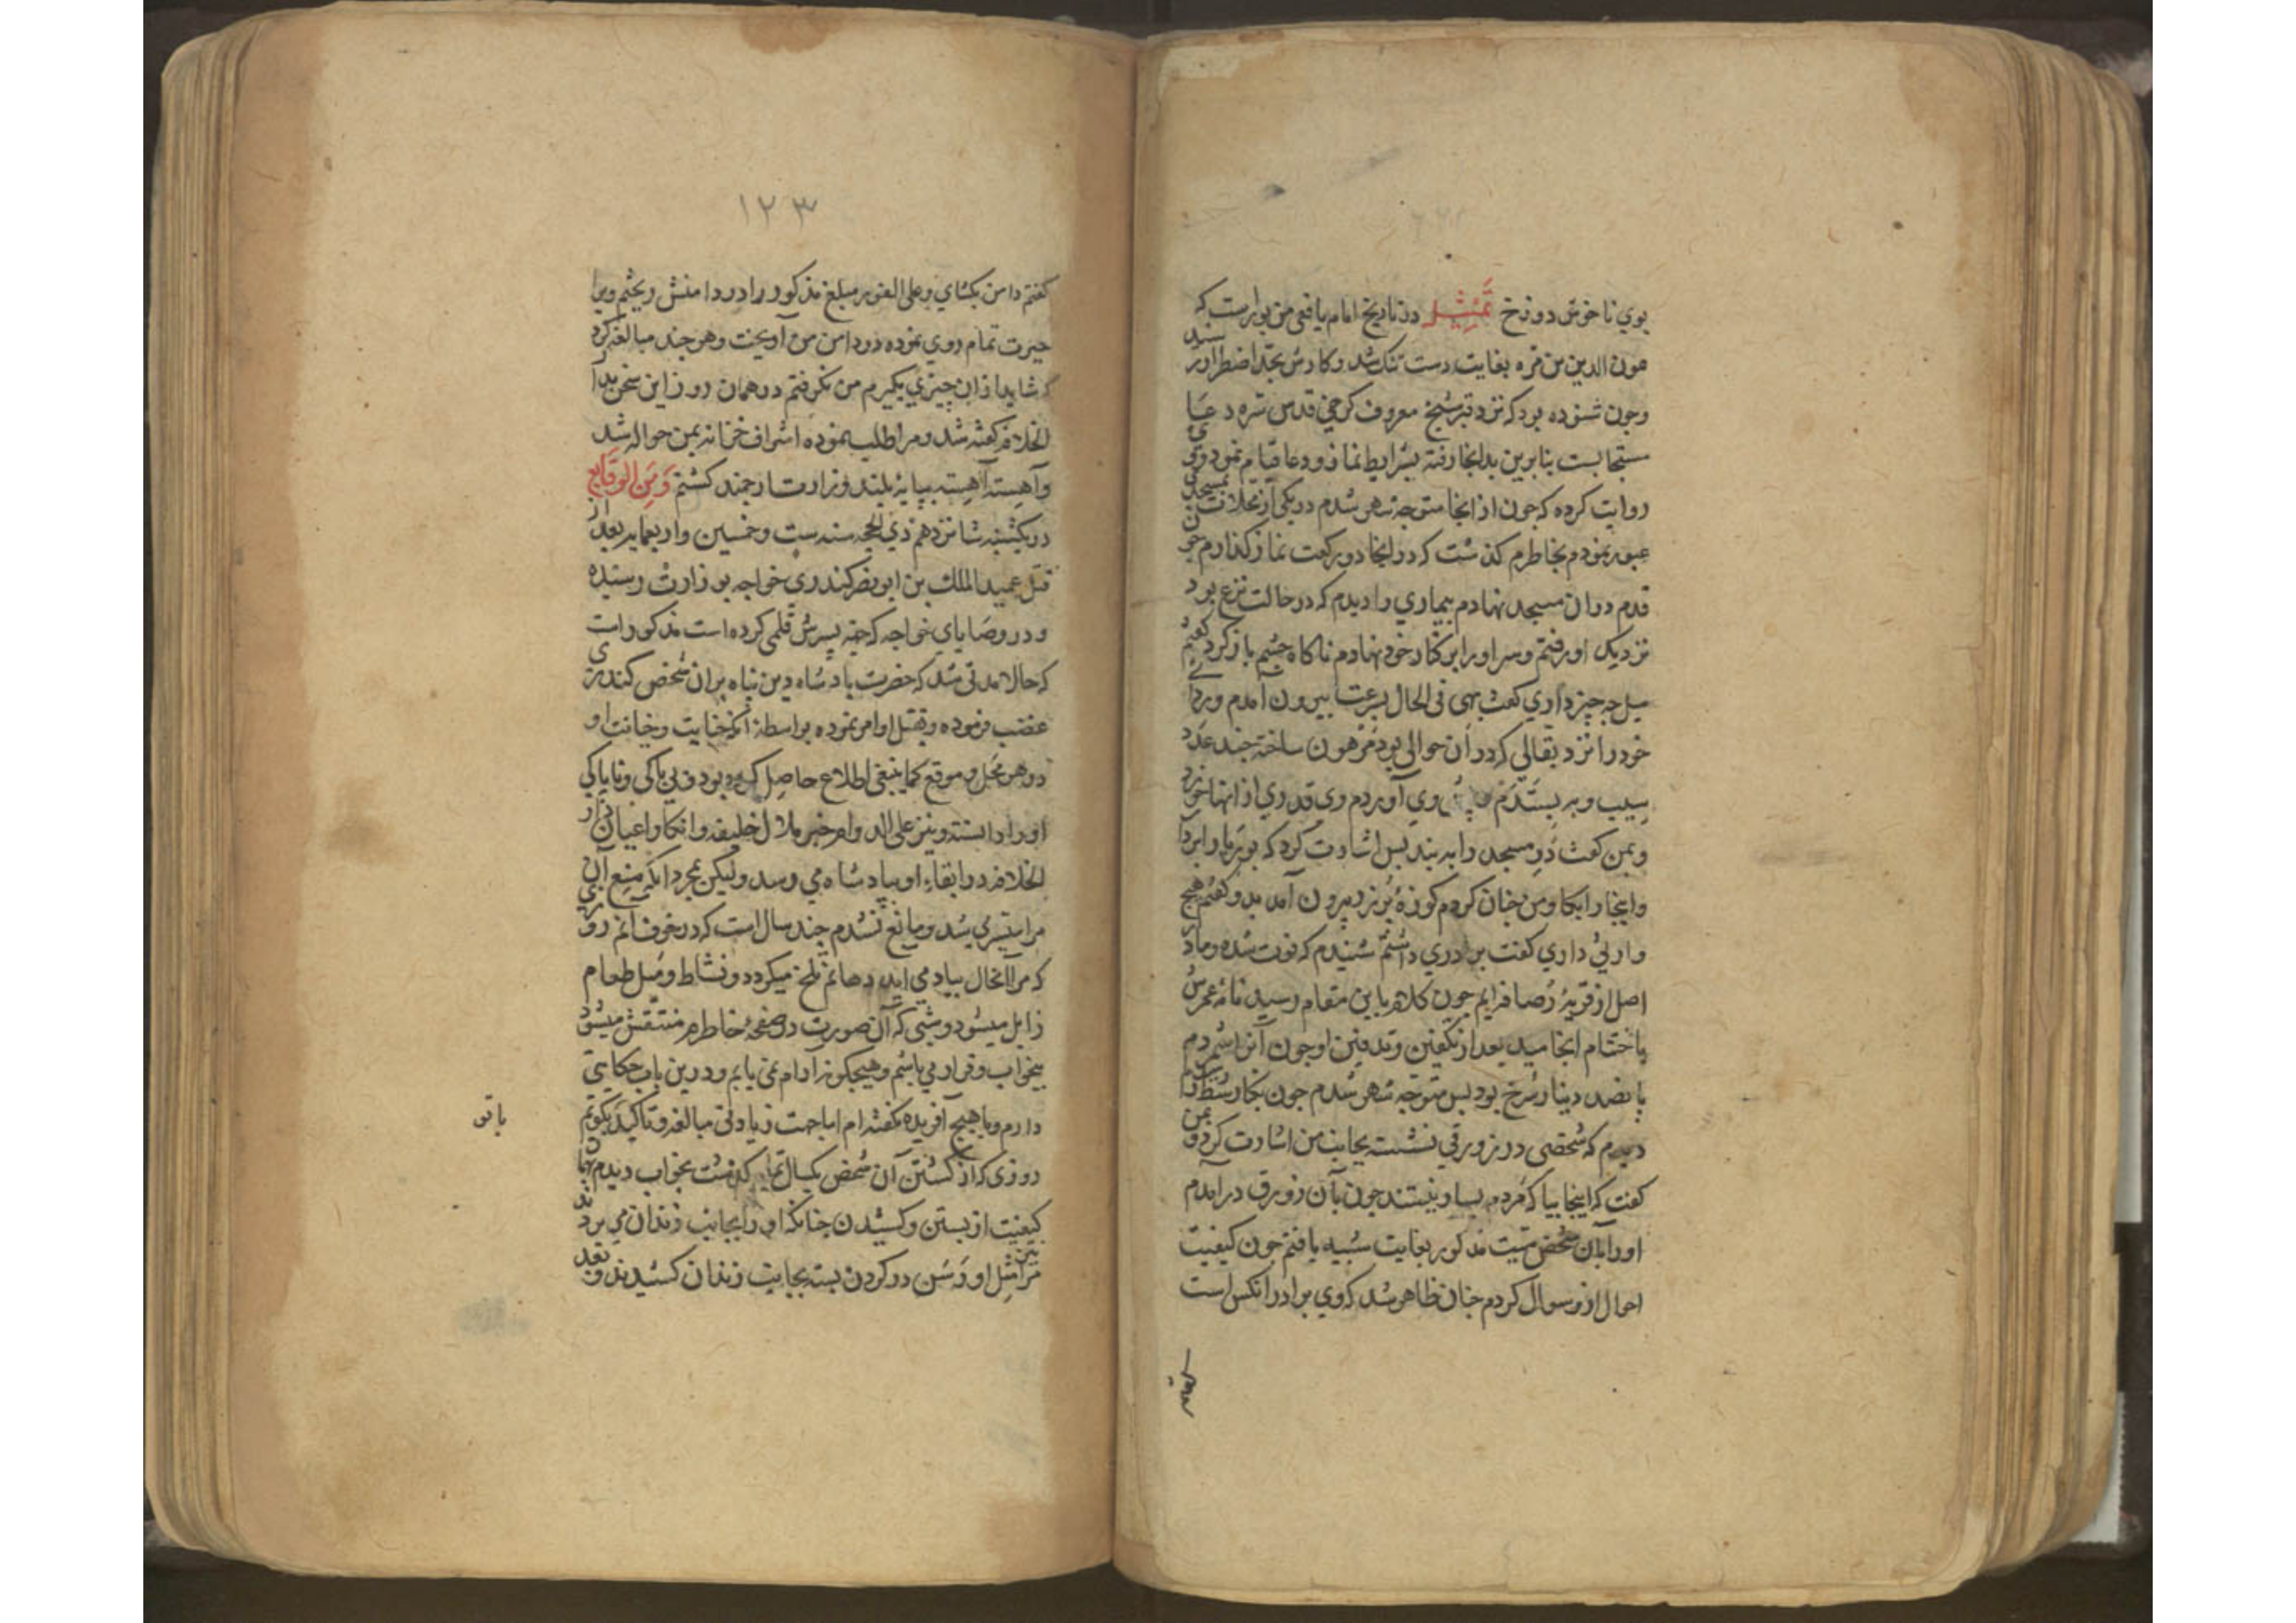 بوي ناخوش دوزخ تمثيل در تاريخ امام يافعي مزبورست كه
عون الدين بن هبره بغايت دست تنك شد و كارش بحد اضطرار رسيد
وجون شنوده بود كه نزد قبر شيخ معروف كرخي قدس سره دعا
مستجابست بنابرين بدانجا رفته بشرايط نماز و دعا قيام نمود وي
روايت كرده كه جون از انجا متوجه شهر شدم در يكي از محلات بمسجدي
عبور نمودم بخاطرم كذشت كه در اينجا دو ركعت نماز كذارم جون
قدم در ان مسجد نهادم بيماري را ديدم كه در حالت نزع بود
نزديك او رفتم و سر او را بر كنار خود نهادم ناكاه جشم باز كرد كفتم
ميل جه چيز داري كفت بهي في الحال بسرعت بيرون آمدم و رداي
خود را نزد بقالي كه در آن حوالي بود مرهون ساخته جند عدد
سيب و به بستدم پيش وي آوردم وي قدري از انها خورد
و بمن كفت در مسجد را به بند پس اشارت كرد كه بوريا را بردار
و اينجا را بكاو من جنان كردم كوزۀ پر زر بيرون آمد بدو كفتم هيچ
وارثي داري كفت برادري داشتم شنيدم كه فوت شده و ما در
اصل از قريۀ رصافه ايم جون كلام باين مقام رسيد نامۀ عمرش
باختتام انجاميد بعد از تكفين و تدفين او جون آنرا شمردم
پانصد دينار سرخ بود پس متوجه شهر شدم جون بكار شط رسيدم
ديدم كه شخصي در زورقي نشسته بجانب من اشارت كرد و بمن
كفت كه اينجا بيا كه مردم بسار نيستند جون بآن زورق در آمدم
او را بآن شخص ميت مذكور بغايت شبيه يافتم جون كيفيت
احوال ازو سوال كردم جنان ظاهر شد كه وي برادر انكس است
١٢٣
كفتم دامن بكشاي و علي الفور مبلغ مذكور را در دامنش ريختم ويرا
حيرت تمام روي نموده در دامن من آويخت و هر جند مبالغه كرد
كه شايد از ان چيزي بكيرم من نكرفتم در همان روز اين سخن بدار
الخلافه كفته شد و مرا طلب نموده اشراف خزانه بمن حواله شد
و آهسته آهسته بپايۀ بلند وزارت ارجمند كشتم و من الوقايع
در يكشنبه شانزدهم ذي الحجه سنه ست و خمسين و اربعمايه بعد از
قتل عميد الملك بن ابو نصر كندري خواجه بوزارت رسيده
و در وصاياي خواجه كه جهة پسرش قلمي كرده است مذكور است
كه حالا مدتي شد كه حضرت پادشاه دين پناه بران شخص كندري
غضب فرموده و بقتل او امر نموده بواسطۀ انكه خبايت و خيانت او
در هر محل و موقع كما ينبغي اطلاع حاصل كرده بود و بي باكي و ناپاكي
او را دانسته و نيز علي الدوام خبر ملال خليفه و انكار اعيان دار
الخلافه در ابقاء او بپادشاه مي رسد وليكن بمجرد انكه منع آن
مرا ميسر مي شد و مانع نشدم چند سال است كه در خوف آنم روزي
كه مرا آنحال بياد مي ايد دهانم تلخ ميكردد و نشاط و ميل طعام
زايل ميشود و شبي كه آن صورت در صفحۀ خاطرم منتقش ميشود
بيخواب و قرار مي باشم و هيچكونه آرام نمي يابم و درين باب حكايتي
دارم و با هيچ آفريده نكفته ام اما جهت زيادتي مبالغه و تاكيد بكويم
روزي كه از كشتن آن شخص يكسال تمام كذشت بخواب ديدم بهمان
كيفيت از بستن و كشيدن جنانكه او را بجانب زندان مي بردند
مرا مثل او رسن در كردن بسته بجانب زندان كشيدند و بعد